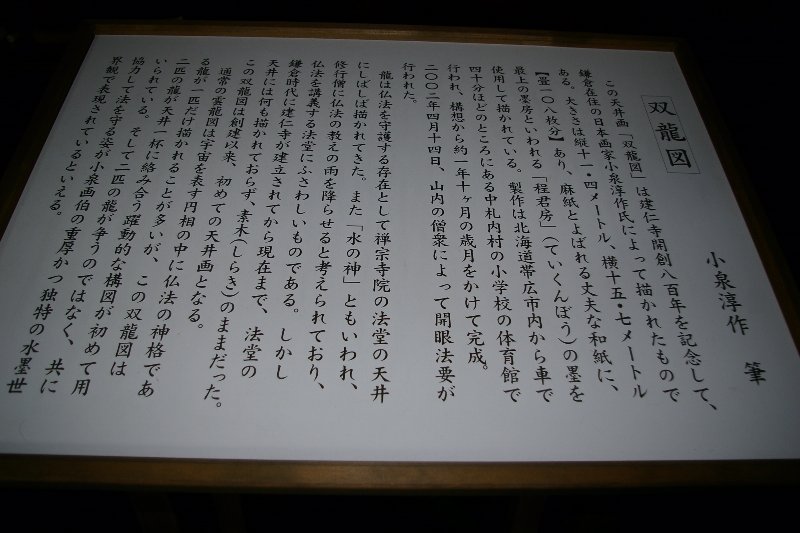 双龍図
小泉淳作 筆
この天井画「双龍図」は建仁寺開創八百年を記念して、
鎌倉在住の日本画家小泉淳作氏によって描かれたもので
ある。大きさは縦十一・四メートル、横十五・七メートル
【畳一〇八枚分】あり、麻紙とよばれる丈夫な和紙に、
最上の墨房といわれる「程君房」(ていくんぼう)の墨を
使用して描かれている。製作は北海道帯広市内から車で
四十分ほどのところにある中札内村の小学校の体育館で
行われ、構想から約一年十ヶ月の歳月をかけて完成。
二〇〇二年四月十四日、山内の僧衆によって開眼法要が
行われた。
龍は仏法を守護する存在として禅宗寺院の法堂の天井
にしばしば描かれてきた。また「水の神」ともいわれ、
修行僧に仏法の教えの雨を降らせると考えられており、
仏法を講義する法堂にふさわしいものである。しかし
鎌倉時代に建仁寺が建立されてから現在まで、法堂の
天井には何も描かれておらず、素木(しらき)のままだった。
この双龍図は創建以来、初めての天井画となる。
通常の雲龍図は宇宙を表す円相の中に仏法の神格であ
る龍が一匹だけ描かれることが多いが、この双龍図は
二匹の龍が天井一杯に絡み合う躍動的な構図が初めて用
いられている。そして二匹の龍が争うのではなく、共に
協力して法を守る姿が小泉画伯の重厚かつ独特の水墨世
界観で表現されているといえる。